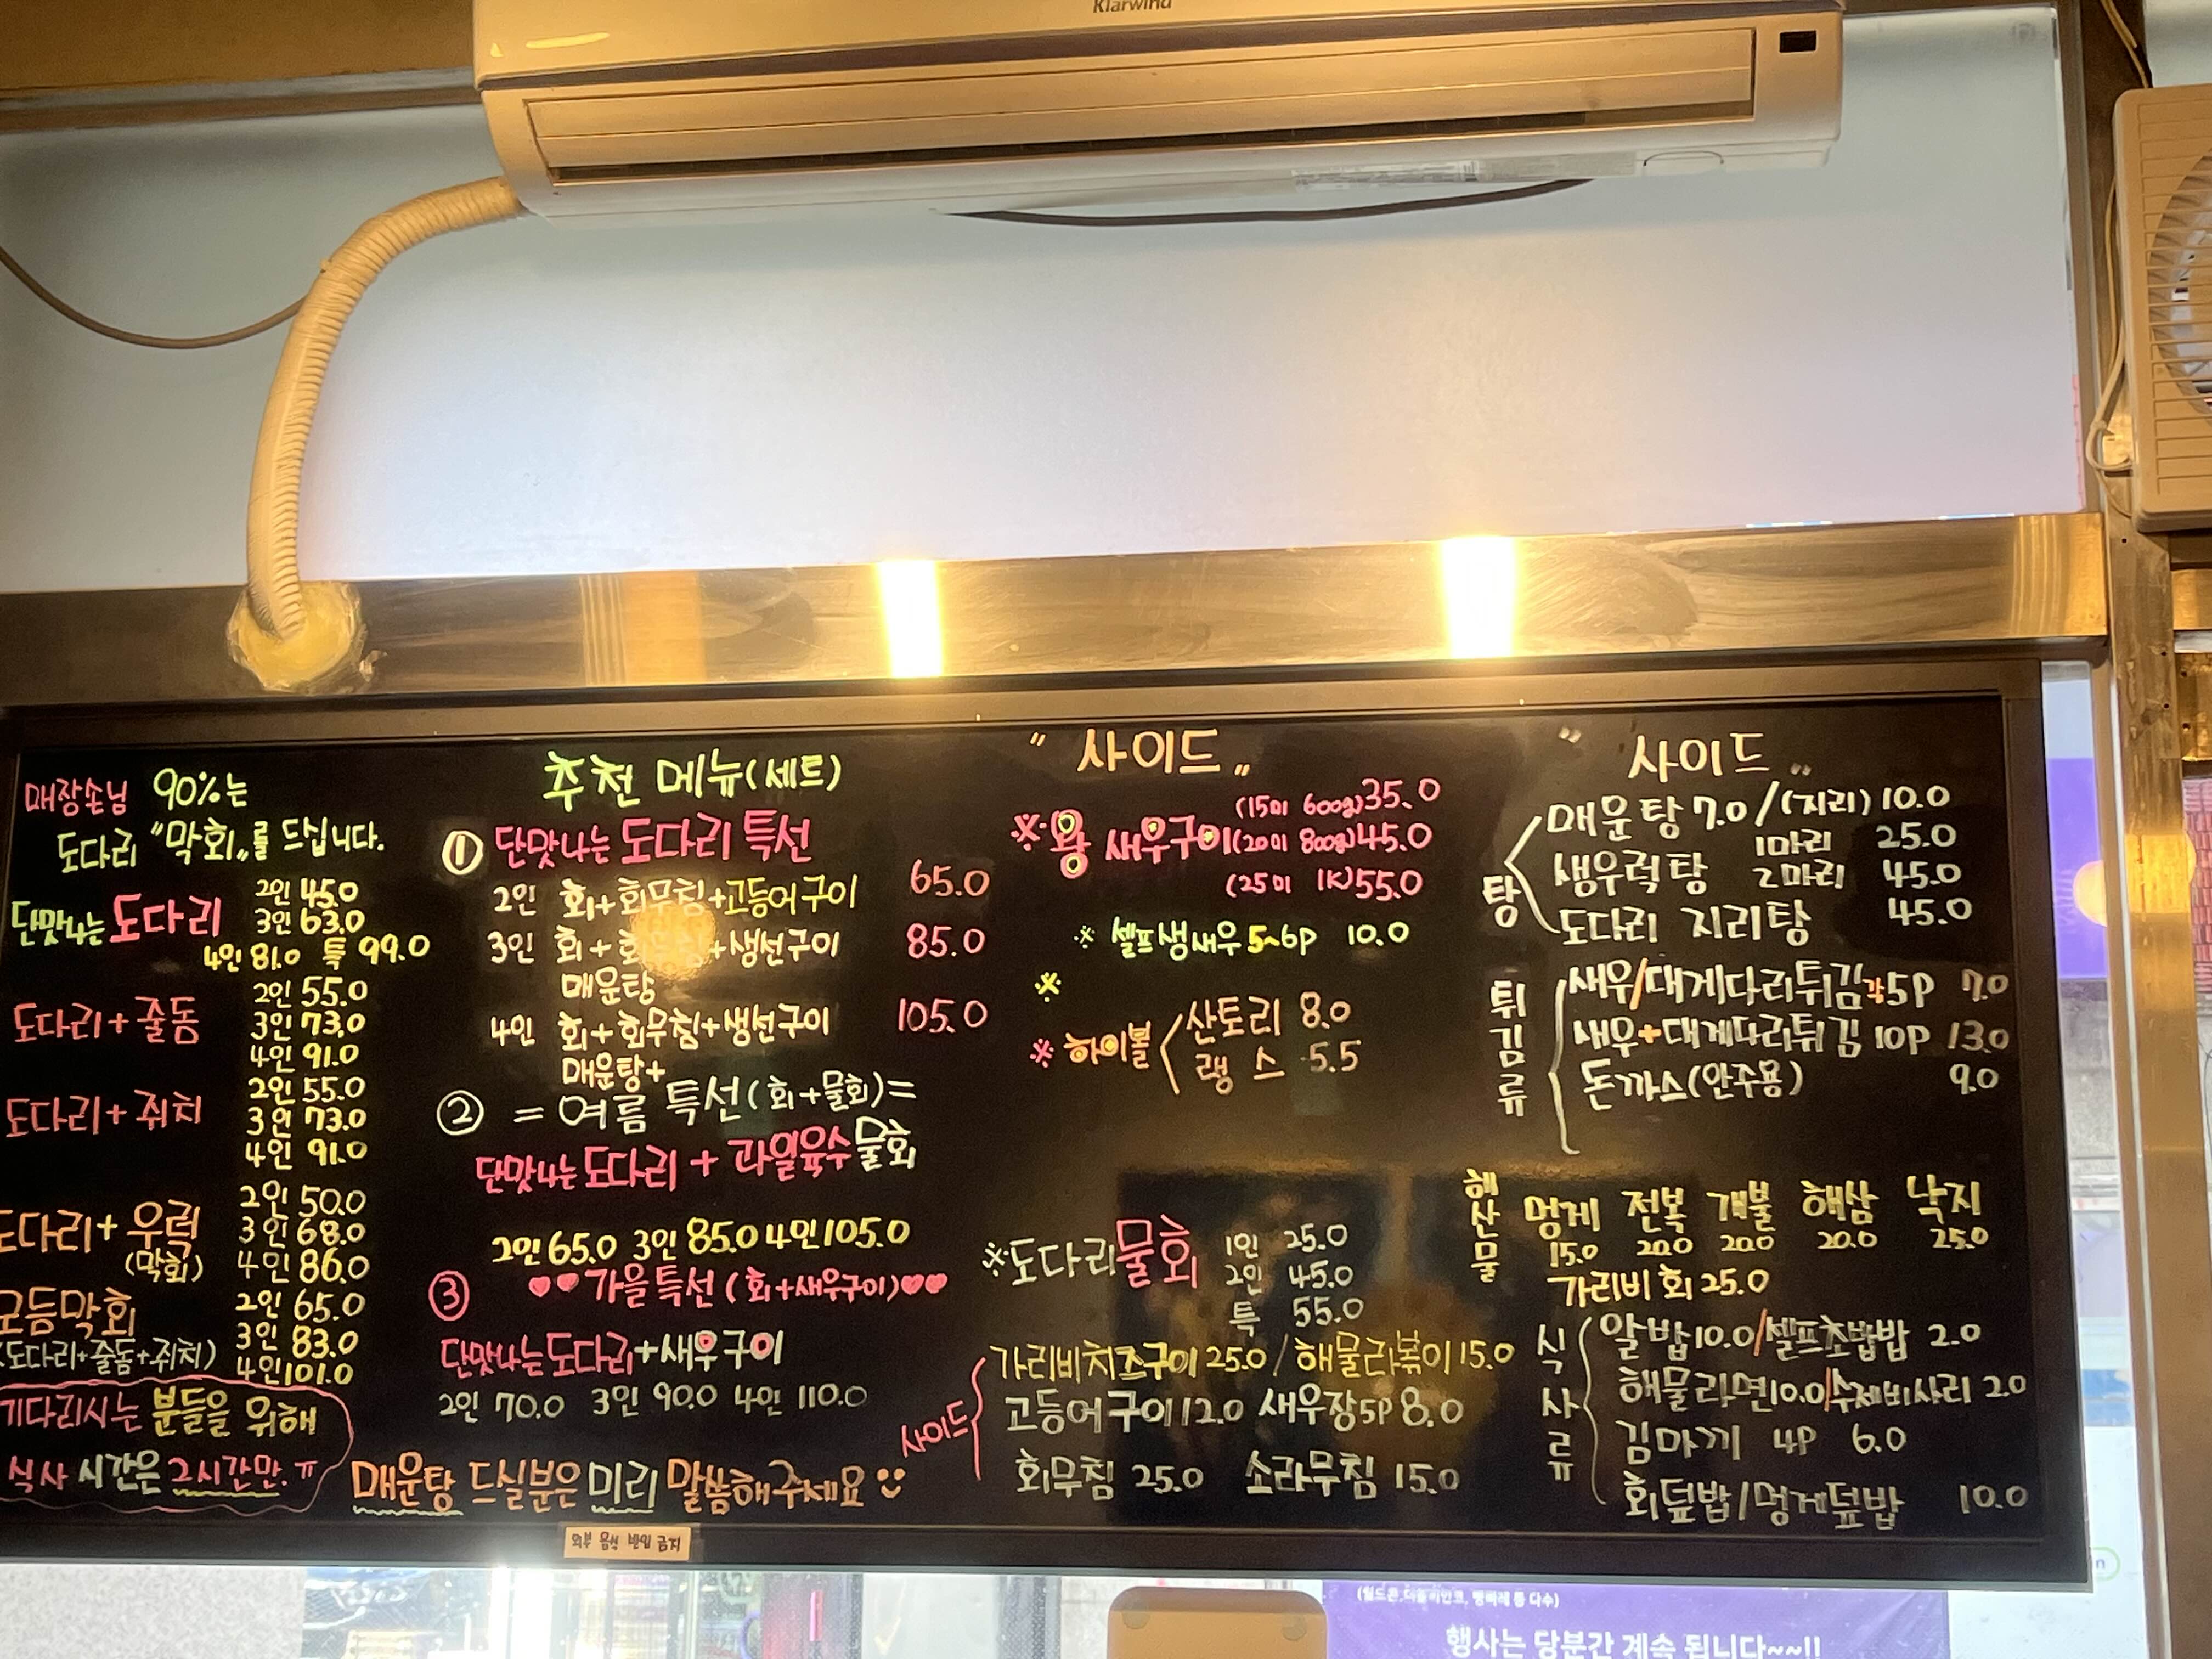 Klarwind
매장손님 90%는
도다리 "막회"를 드십니다.
단맛나는 도다리
2인 45.0
3인 63.0
4인 81.0 특 99.0
도다리+줄돔
2인 55.0
3인 73.0
4인 91.0
도다리+쥐치
2인 55.0
3인 73.0
4인 91.0
도다리+우럭
(막회)
2인 50.0
3인 68.0
4인 86.0
모듬막회
(도다리+줄돔+쥐치)
2인 65.0
3인 83.0
4인 101.0
기다리시는 분들을 위해
식사 시간은 2시간만.ㅠ
추천 메뉴(세트)
① 단맛나는 도다리 특선
2인 회+회무침+고등어구이 65.0
3인 회+회무침+생선구이 85.0
매운탕
4인 회+회무침+생선구이 105.0
매운탕+
② = 여름 특선(회+물회)=
단맛나는 도다리 + 과일육수물회
2인 65.0 3인 85.0 4인 105.0
③ ♥♥ 가을특선(회+새우구이)♥♥
단맛나는도다리+새우구이
2인 70.0 3인 90.0 4인 110.0
매운탕 드실분은 미리 말씀해주세요
" 사이드 "
※용 새우구이
(15미 600g) 35.0
(20미 800g) 45.0
(25미 1K) 55.0
※ 셀프생새우 5~6p 10.0
※
※ 하이볼
산토리 8.0
랭스 5.5
※도다리물회
1인 25.0
2인 45.0
특 55.0
사이드
가리비치즈구이 25.0 / 해물라볶이 15.0
고등어구이 12.0 새우장5P 8.0
회무침 25.0 소라무침 15.0
" 사이드 "
탕
매운탕 7.0/(지리) 10.0
생우럭탕
1마리 25.0
2마리 45.0
도다리 지리탕 45.0
튀김류
새우/대게다리튀김각5P 7.0
새우+대게다리튀김 10P 13.0
돈까스(안주용) 9.0
해산물
멍게 전복 개불 해삼 낙지
15.0 20.0 20.0 20.0 25.0
가리비 회 25.0
식사류
알밥10.0/셀프초밥밥 2.0
해물라면10.0/수제비사리 2.0
김마끼 4P 6.0
회덮밥/멍게덮밥 10.0
외부 음식 반입 금지
행사는 당분간 계속 됩니다~~!!